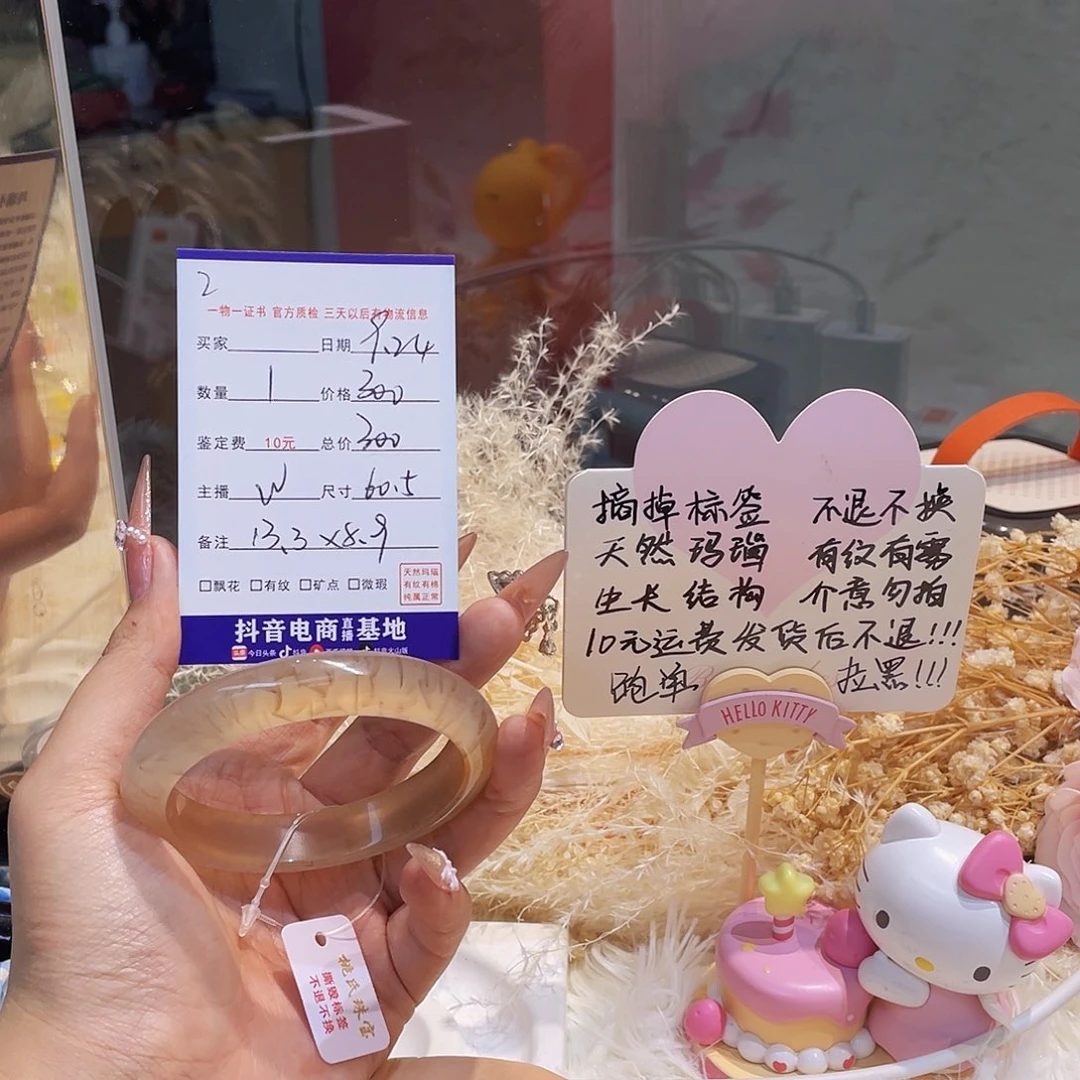 2
一物一证书 官方质检 三天以后有物流信息
买家 日期 9.24
数量 1 价格 300
鉴定费 10元 总价 300
主播 W 尺寸 60.5
备注 13.3×8.9
□飘花 □有纹 □矿点 □微瑕
天然玛瑙
有纹有棉
纯属正常
抖音电商直播基地
头条 今日头条 抖音 抖音火山版
摘掉标签 不退不换
天然玛瑙 有纹有雾
生长结构 介意勿拍
10元运费发货后不退!!!
跑单 拉黑!!!
HELLO KITTY
姚氏珠宝
撕毁标签
不退不换